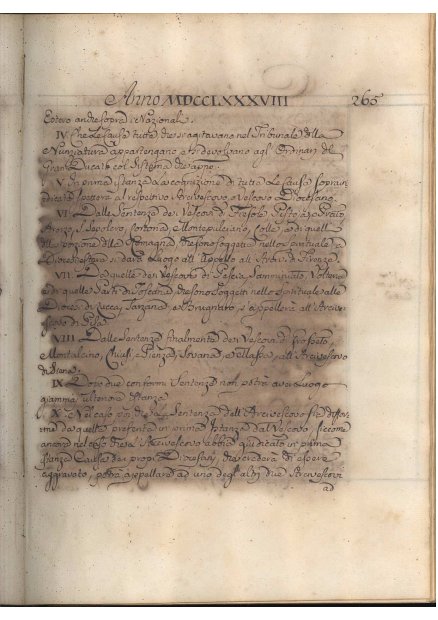 Anno MDCCLXXXVIII 265
IV. Che le Cause tutte che si agitavano nel Tribunale della
Nunziatura appartengano e si devolvino agl' Ordinari del
Gran Ducato col sistema che
V. In prima istanza la cognizione di tutte le Cause sopran
spetterà al respettivo Arcivescovo o Vescovo Diocesano.
VI. Dalle Sentenze dei Vescovi di Fiesole, Pistoja, e Prato,
Arezzo, S. Sepolcro, Cortona, e Montepulciano, Colle, e di quell
porzione della Romagna che sono soggetti nello Spirituale a
si darà Luogo all' Appello all' Arciv. di Firenze.
VII. Da quelle dei Vescovi di Pescia, Samminiato, Volterra
di quelle parti di Toscana che sono soggetti nello Spirituale alle
Diocesi di Lucca, Sarzana, e Brugnato si appellerà all' Arcive
scovo di Pisa.
VIII. Dalle Sentenze finalmente dei Vescovi di Grosseto,
Montalcino, Chiusi, e Pienza, Sovana, e Massa, all' Arcivescovo
di Siena.
IX. Dopo due conformi Sentenze non potrà aver luogo
giammai ulteriore istanza.
X. Nel caso poi che la Sentenza dell' Arcivescovo sia diffor
me da quella proferita in prima istanza dal Vescovo, siccome
ancora nel caso che l' Arcivescovo abbia giudicato in prima
istanza Causa dei propri Diocesani, chi crederà di essere
aggravato, potrà appellare ad uno degl' altri due Arcivescovi
ad